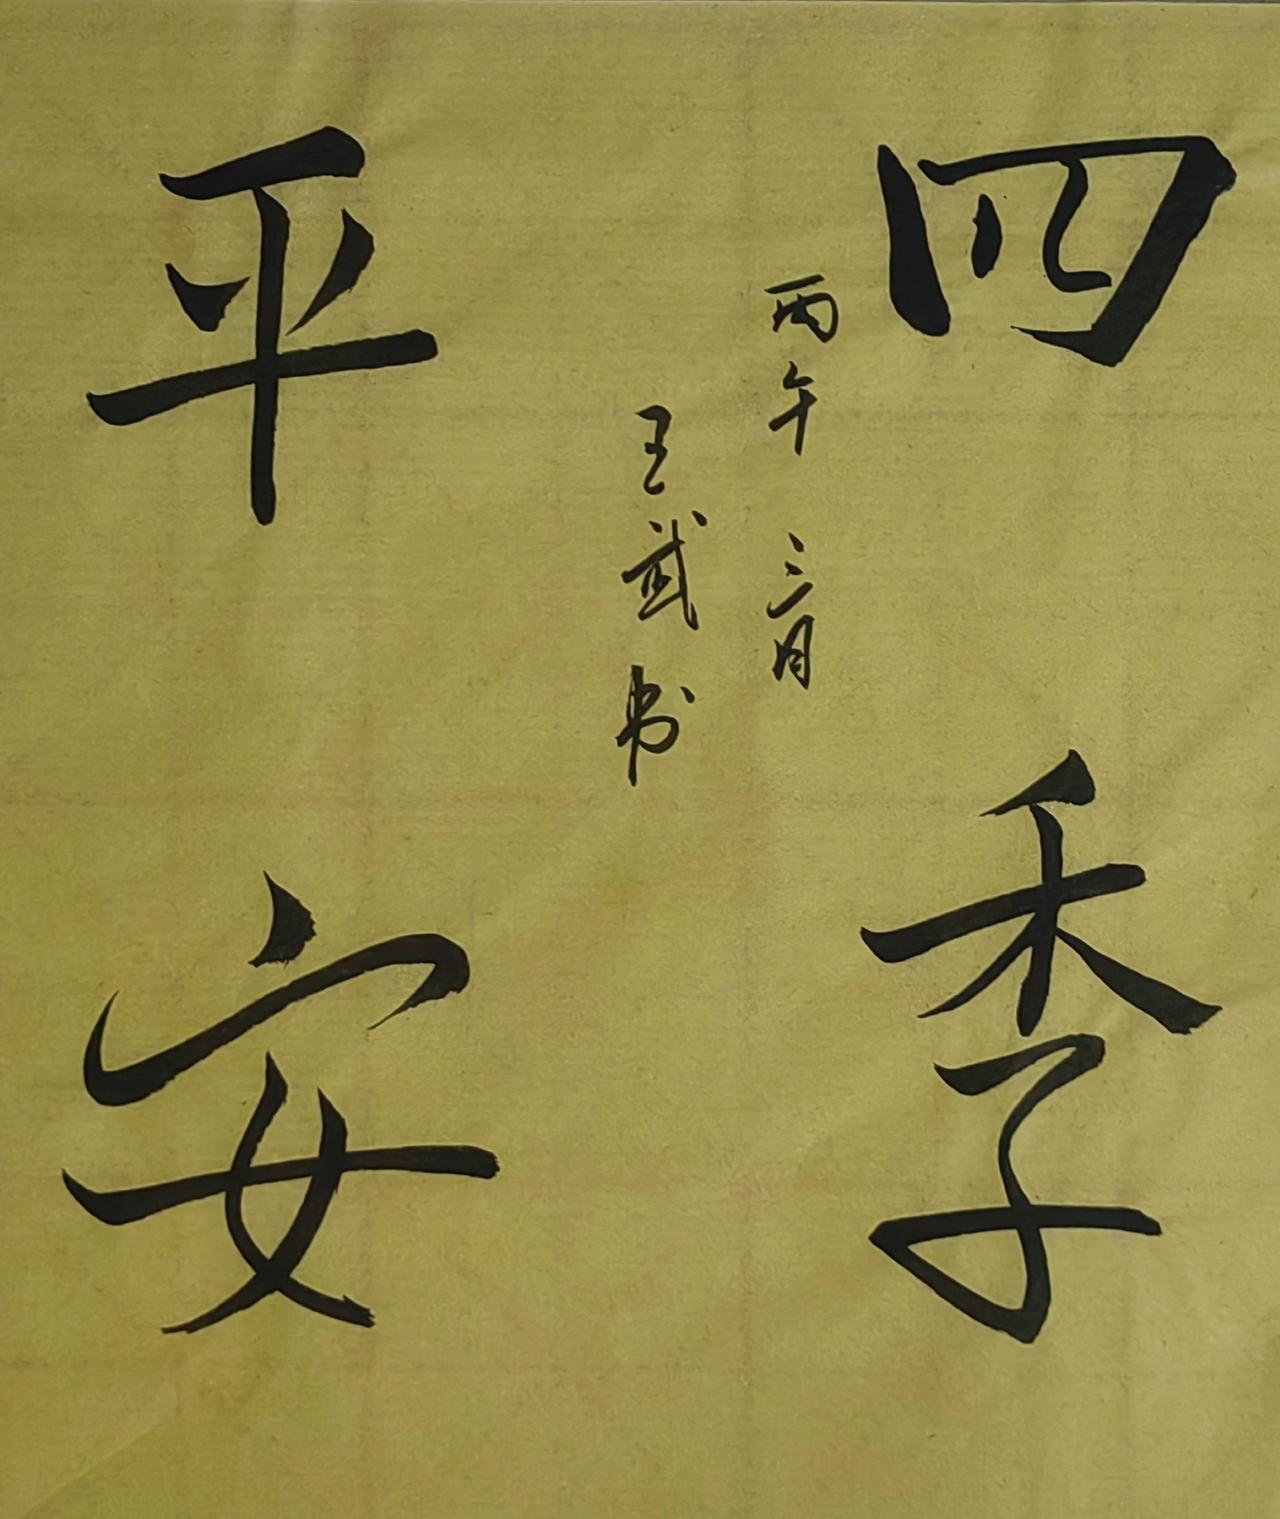 四季
丙午 三月
王武书
平安